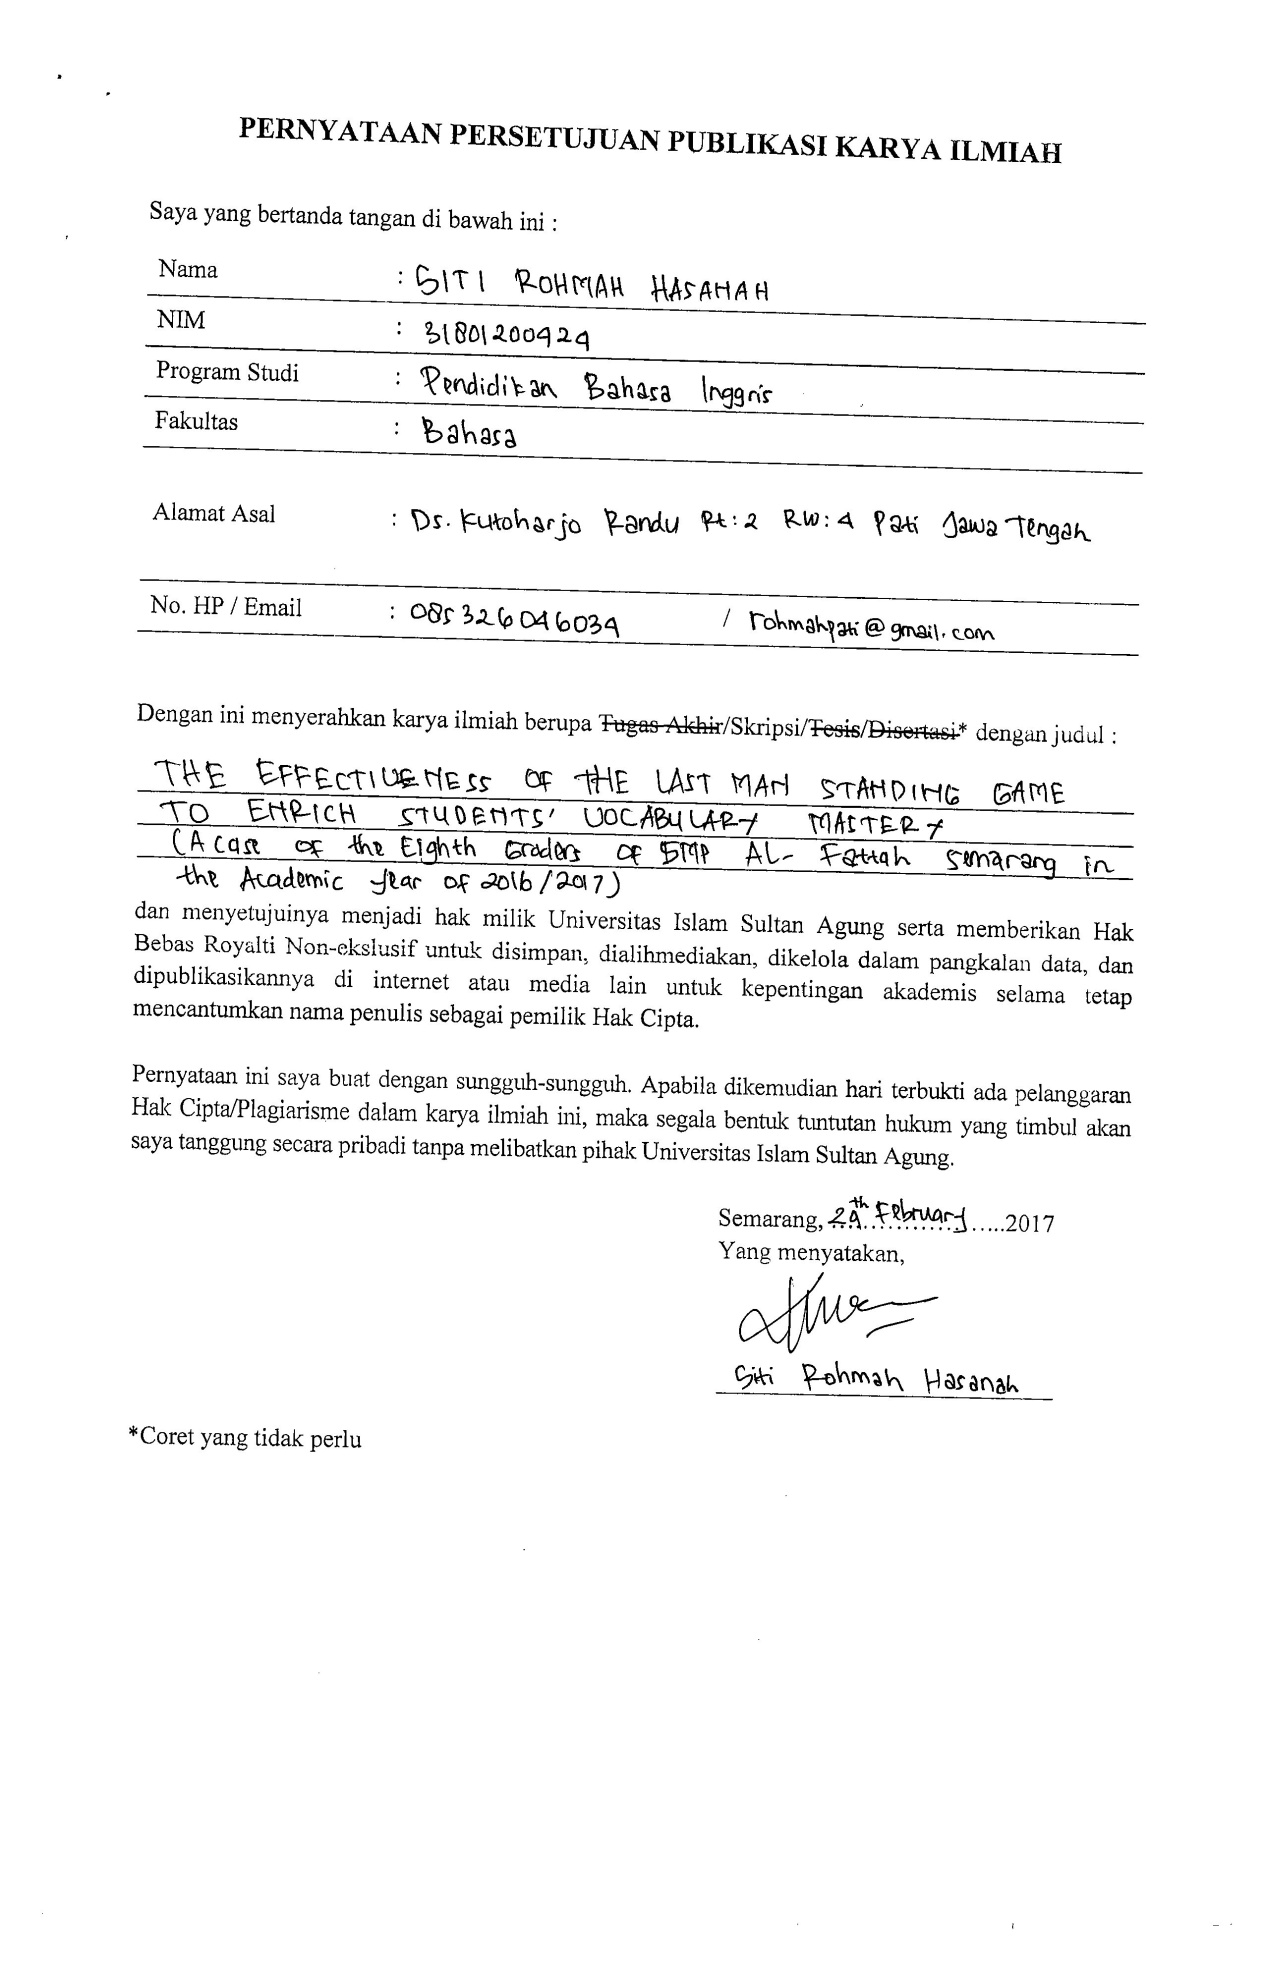 PERNYATAAN PERSETUJUAN PUBLIKASI KARYA ILMIAH
Saya yang bertanda tangan di bawah ini :
Nama : SITI ROHMAH HASANAH
NIM : 31801200424
Program Studi : Pendidikan Bahasa Inggris
Fakultas : Bahasa
Alamat Asal : Ds. Kutoharjo Randu Rt:2 RW:4 Pati Jawa Tengah
No. HP / Email : 085326046034 / rohmahpati@gmail.com
Dengan ini menyerahkan karya ilmiah berupa Tugas Akhir/Skripsi/Tesis/Disertasi* dengan judul :
THE EFFECTIVENESS OF THE LAST MAN STANDING GAME
TO ENRICH STUDENTS' VOCABULARY MASTERY
(A Case of the Eighth Graders of SMP AL-Fattah Semarang in
the Academic Year of 2016/2017)
dan menyetujuinya menjadi hak milik Universitas Islam Sultan Agung serta memberikan Hak
Bebas Royalti Non-ekslusif untuk disimpan, dialihmediakan, dikelola dalam pangkalan data, dan
dipublikasikannya di internet atau media lain untuk kepentingan akademis selama tetap
mencantumkan nama penulis sebagai pemilik Hak Cipta.
Pernyataan ini saya buat dengan sungguh-sungguh. Apabila dikemudian hari terbukti ada pelanggaran
Hak Cipta/Plagiarisme dalam karya ilmiah ini, maka segala bentuk tuntutan hukum yang timbul akan
saya tanggung secara pribadi tanpa melibatkan pihak Universitas Islam Sultan Agung.
Semarang, 24th February.....2017
Yang menyatakan,
Siti Rohmah Hasanah
*Coret yang tidak perlu